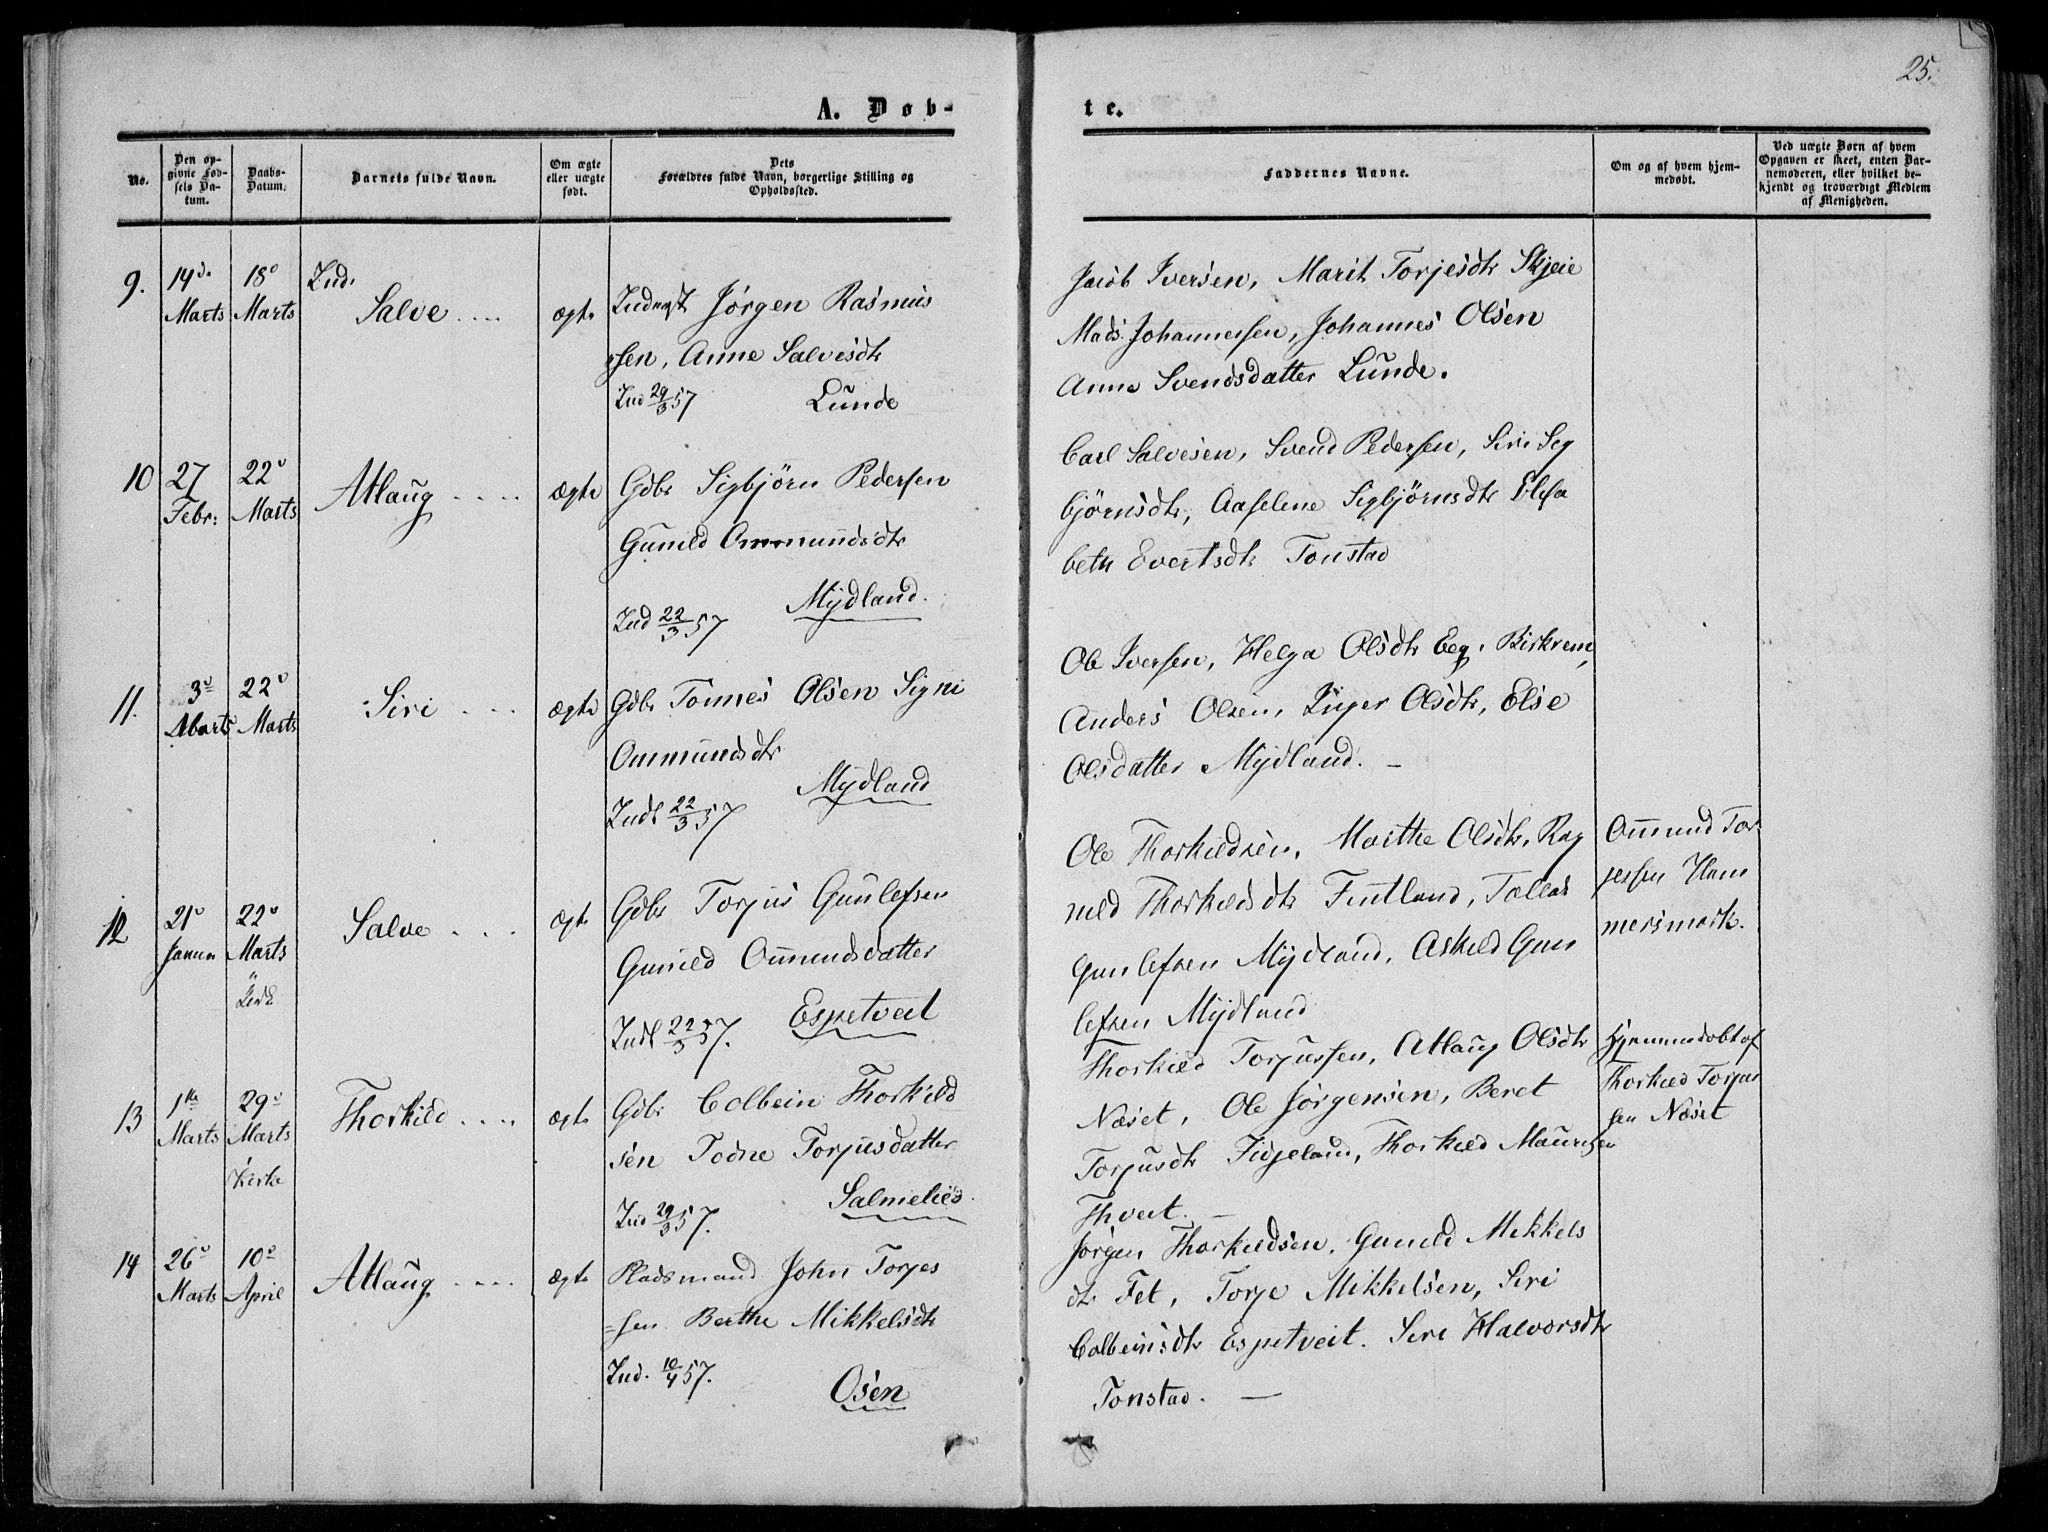 25.
A. Døb-
te.
No.
Den op-
givne Fød-
sels Da-
tum.
Daabs-
Datum.
Barnets fulde Navn.
Om ægte
eller uægte
født.
Dets
Forældres fulde Navn, borgerlige Stilling og
Opholdssted.
Faddernes Navne.
Om og af hvem hjem-
medøbt.
Ved uægte Børn af hvem
Opgaven er skeet, enten Bar-
nemoderen, eller hvilket be-
kjendt og troværdigt Medlem
af Menigheden.
9.
14de
Marts
18e
Marts
Ind.
Salve ....
ægte
Inderst Jörgen Rasmus
sen, Anne Salvesdtr
Ind 29/3 57 Lunde
Jacob Iversen, Marit Torjesdtr Skjeie
Mads Johannessen, Johannes Olsen
Anne Svendsdatter Lunde.
10
27
Febr:
22e
Marts
Atlaug ....
ægte
Gdbr Sigbjörn Pedersen
Gunild Ommundsdtr
Mydland.
Ind 22/3 57
Carl Salvesen, Svend Pedersen, Siri Sig
björnsdtr, Aaselene Sigbjörnsdtr Elisa
beth Evertsdtr Tonstad
11.
3e
Marts
22e
Marts
Siri ...
ægte
Gdbr Tönnes Olsen Signi
Ommundsdtr
Mydland
Indt 22/3 57
Ole Iversen, Helga Olsdtr Eeg. Birkrem,
Anders Olsen, Inger Olsdtr, Else
Olsdatter Mydland. –
12
21e
Januar
22e
Marts
Kirke
Salve ....
ægte
Gdbr Torjus Gunlefsen
Gunild Ommundsdatter
Espetveit
Indt 22/3 57.
Ole Thorkildsen, Marthe Olsdtr, Rag
nild Thorkildsdtr Fintland, Tallak
Gunlefsen Mydland, Askild Gun
lefsen Mydland
Ommund Tor
jessen Ham
mersmark.
13
1ste
Marts
29e
Marts
Kirke
Thorkild ....
ægte
Gdbr Colbein Thorkild
sen Todne Torjusdatter
Salmelied.
Ind 29/3 57.
Thorkild Torjussen, Atlaug Olsdtr
Næset, Ole Jörgensen, Beret
Torjusdtr Fidjeland, Thorkild Mauritsen
Thveit. –
Hjemmedöbt af
Thorkild Torjus
sen Næset
14
26e
Marts
10e
April
Atlaug ....
ægte
Pladsmand John Torjes
=sen Berthe Mikkelsdtr
Ind. 10/4 57.
Osen
Jörgen Thorkildsen, Gunild Mikkels
dtr Fet, Torje Mikkelsen, Siri
Colbeinsdtr Espetveit. Siri Halvorsdtr
Tonstad. –